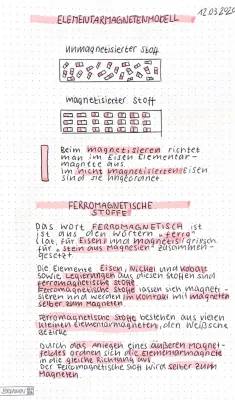 12.03.2020
ELEMENTARMAGNETENMODELL
unmagnetisierter Stoff
magnetisierter Stoff
Beim magnetisieren richtet
man im Eisen Elementar-
magnete aus.
Im nicht magnetisierten Eisen
sind sie ungeordnet.
FERROMAGNETISCHE
STOFFE
Das Wort FERROMAGNETISCH ist
ist aus den Wörtern "ferro"
(lat. für Eisen) und magnetis (grisch
für "Stein aus Magnesien" zusammen-
gesetzt.
Die Elemente Eisen, Nickel und Kobalt
sowie Legierungen aus diesen Stoffen sind
ferromagnetische Stoffe.
Ferromagnetische Stoffe lassen sich magneti-
sieren und werden im Kontakt mit Magneten
selber zum Magneten.
Ferromagnetische Stoffe bestehen aus vielen
kleinen Elementarmagneten, den Weißsche
Bezirke
Durch das Anlegen eines äußeren Magnet-
feldes ordnen sich die Elementarmagnete
in die gleiche Richtung aus.
Der Ferromagnetische Stoff wird selber zum
Magneten.